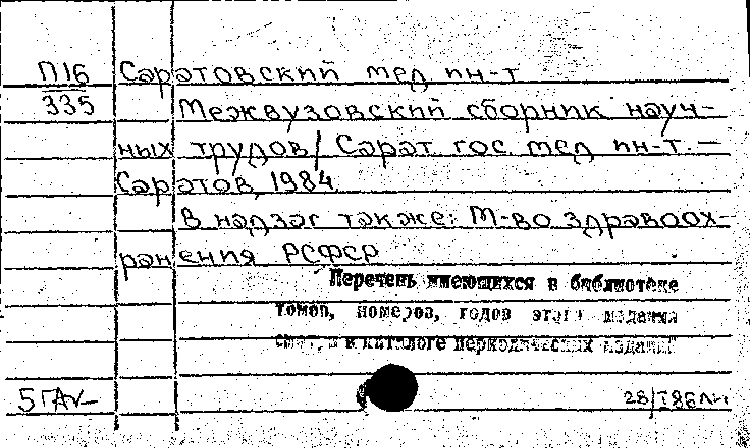 П16 Саратовский мед ин-т
335 Межвузовский сборник науч-
ных трудов / Сарат гос. мед ин-т. —
Саратов, 1984
В надзаг также: М-во здравоох-
ранения РСФСР
Перечень имеющихся в библиотеке
томов, номеров, годов этого издания
смотри в каталоге периодических изданий
28/I 86